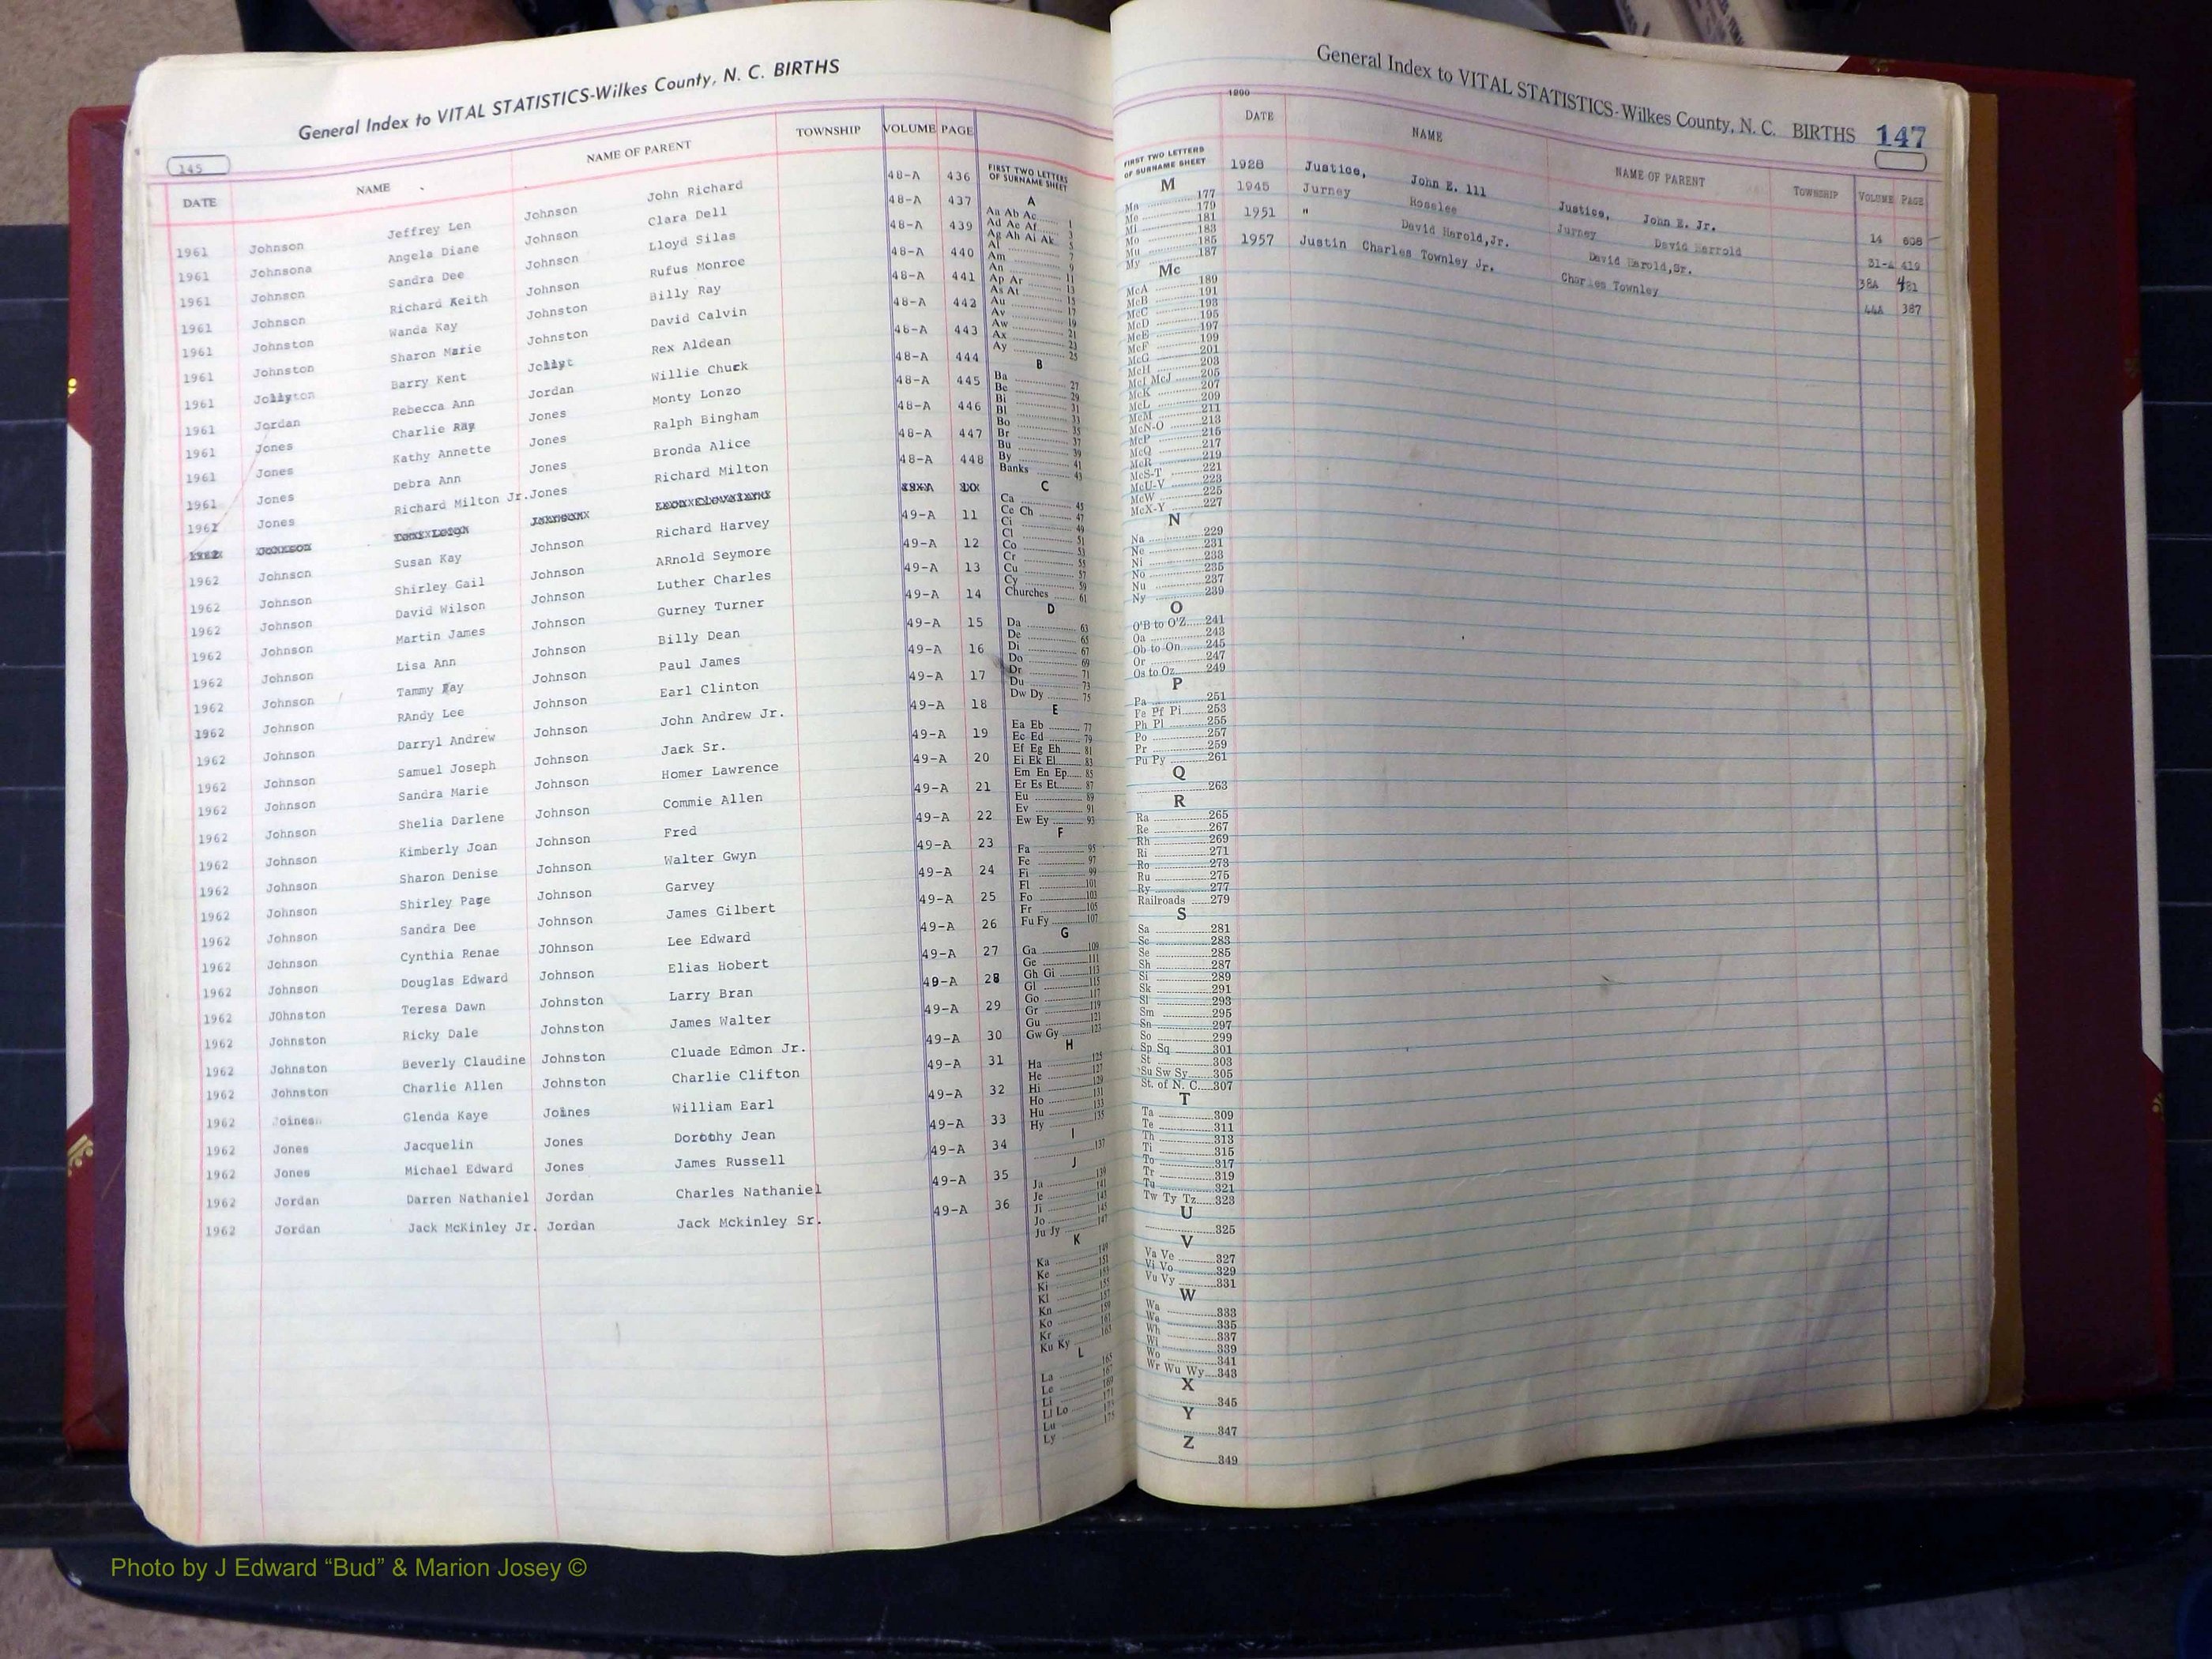 General Index to VITAL STATISTICS-Wilkes County, N. C. BIRTHS
145
DATE NAME NAME OF PARENT TOWNSHIP VOLUME PAGE
1961 Johnson Jeffrey Len Johnson John Richard 48-A 436
1961 Johnsona Angela Diane Johnson Clara Dell 48-A 437
1961 Johnson Sandra Dee Johnson Lloyd Silas 48-A 439
1961 Johnson Richard Keith Johnson Rufus Monroe 48-A 440
1961 Johnston Wanda Kay Johnston Billy Ray 48-A 441
1961 Johnston Sharon Marie Johnston David Calvin 48-A 442
1961 Barry Kent Rex Aldean 48-A 443
1961 Jordan Rebecca Ann Jordan Willie Chuck 48-A 444
1961 Jones Charlie Ray Jones Monty Lonzo 48-A 445
1961 Jones Kathy Annette Jones Ralph Bingham 48-A 446
1961 Jones Debra Ann Jones Bronda Alice 48-A 447
1961 Jones Richard Milton Jr. Jones Richard Milton 48-A 448
1962 Johnson Susan Kay Johnson Richard Harvey 49-A 11
1962 Johnson Shirley Gail Johnson ARnold Seymore 49-A 12
1962 Johnson David Wilson Johnson Luther Charles 49-A 13
1962 Johnson Martin James Johnson Gurney Turner 49-A 14
1962 Johnson Lisa Ann Johnson Billy Dean 49-A 15
1962 Johnson Tammy Johnson Paul James 49-A 16
1962 Johnson RAndy Lee Johnson Earl Clinton 49-A 17
1962 Johnson Darryl Andrew Johnson John Andrew Jr. 49-A 18
1962 Johnson Samuel Joseph Johnson Jack Sr. 49-A 19
1962 Johnson Sandra Marie Johnson Homer Lawrence 49-A 20
1962 Johnson Shelia Darlene Johnson Commie Allen 49-A 21
1962 Johnson Kimberly Joan Johnson Fred 49-A 22
1962 Johnson Sharon Denise Johnson Walter Gwyn 49-A 23
1962 Johnson Shirley Page Johnson Garvey 49-A 24
1962 Johnson Sandra Dee Johnson James Gilbert 49-A 25
1962 Johnson Cynthia Renae JOhnson Lee Edward 49-A 26
1962 Johnson Douglas Edward Johnson Elias Hobert 49-A 27
1962 JOhnston Teresa Dawn Johnston Larry Bran 49-A 28
1962 Johnston Ricky Dale Johnston James Walter 49-A 29
1962 Johnston Beverly Claudine Johnston Cluade Edmon Jr. 49-A 30
1962 Johnston Charlie Allen Johnston Charlie Clifton 49-A 31
1962 Joines Glenda Kaye Joines William Earl 49-A 32
1962 Jones Jacquelin Jones Dorothy Jean 49-A 33
1962 Jones Michael Edward Jones James Russell 49-A 34
1962 Jordan Darren Nathaniel Jordan Charles Nathaniel 49-A 35
1962 Jordan Jack McKinley Jr. Jordan Jack Mckinley Sr. 49-A 36
FIRST TWO LETTERS
OF SURNAME SHEET
A
Aa Ab Ac 1
Ad Ae Af 3
Ag Ah Ai Ak 5
Al 7
Am 9
An 11
Ap Ar 13
As At 15
Au 17
Av 19
Aw 21
Ax 23
Ay 25
B
Ba 27
Be 29
Bi 31
Bl 33
Bo 35
Br 37
Bu 39
By 41
Banks 43
C
Ca 45
Ce Ch 47
Ci 49
Cl 51
Co 53
Cr 55
Cu 57
Cy 59
Churches 61
D
Da 63
De 65
Di 67
Do 69
Dr 71
Du 73
Dw Dy 75
E
Ea Eb 77
Ec Ed 79
Ef Eg Eh 81
Ei Ek El 83
Em En Ep 85
Er Es Et 87
Eu 89
Ev 91
Ew Ey 93
F
Fa 95
Fe 97
Fi 99
Fl 101
Fo 103
Fr 105
Fu Fy 107
G
Ga 109
Ge 111
Gh Gi 113
Gl 115
Go 117
Gr 119
Gu 121
Gw Gy 123
H
Ha 125
He 127
Hi 129
Ho 131
Hu 133
Hy 135
I
137
J
Ja 139
Je 141
Ji 143
Jo 145
Ju Jy 147
K
Ka 149
Ke 151
Ki 153
Kl 155
Kn 157
Ko 159
Kr 161
Ku Ky 163
L
La 165
Le 167
Li 169
Ll Lo 171
Lu 173
Ly 175
General Index to VITAL STATISTICS-Wilkes County, N. C. BIRTHS 147
1900
DATE NAME NAME OF PARENT TOWNSHIP VOLUME PAGE
1928 Justice, John E. 111 Justice, John E. Jr. 14 608
1945 Jurney Roselee Jurney David Harrold 31-A 419
1951 " David Harold,Jr. David Harold,Sr. 38A 481
1957 Justin Charles Townley Jr. Charles Townley 44A 387
FIRST TWO LETTERS
OF SURNAME SHEET
M
Ma 177
Me 179
Mi 181
Mo 183
Mu 185
My 187
Mc
McA 189
McB 191
McC 193
McD 195
McE 197
McF 199
McG 201
McH 203
McI McJ 205
McK 207
McL 209
McM 211
McN-O 213
McP 215
McQ 217
McR 219
McS-T 221
McU-V 223
McW 225
McX-Y 227
N
Na 229
Ne 231
Ni 233
No 235
Nu 237
Ny 239
O
O'B to O'Z 241
Oa 243
Ob to On 245
Or 247
Os to Oz 249
P
Pa 251
Pe Pf Pi 253
Ph Pl 255
Po 257
Pr 259
Pu Py 261
Q
263
R
Ra 265
Re 267
Rh 269
Ri 271
Ro 273
Ru 275
Ry 277
Railroads 279
S
Sa 281
Sc 283
Se 285
Sh 287
Si 289
Sk 291
Sl 293
Sm 295
Sn 297
So 299
Sp Sq 301
St 303
Su Sw Sy 305
St. of N. C. 307
T
Ta 309
Te 311
Th 313
Ti 315
To 317
Tr 319
Tu 321
Tw Ty Tz 323
U
325
V
Va Ve 327
Vi Vo 329
Vu Vy 331
W
Wa 333
We 335
Wh 337
Wi 339
Wo 341
Wr Wu Wy 343
X
345
Y
347
Z
349
Photo by J Edward “Bud” & Marion Josey ©